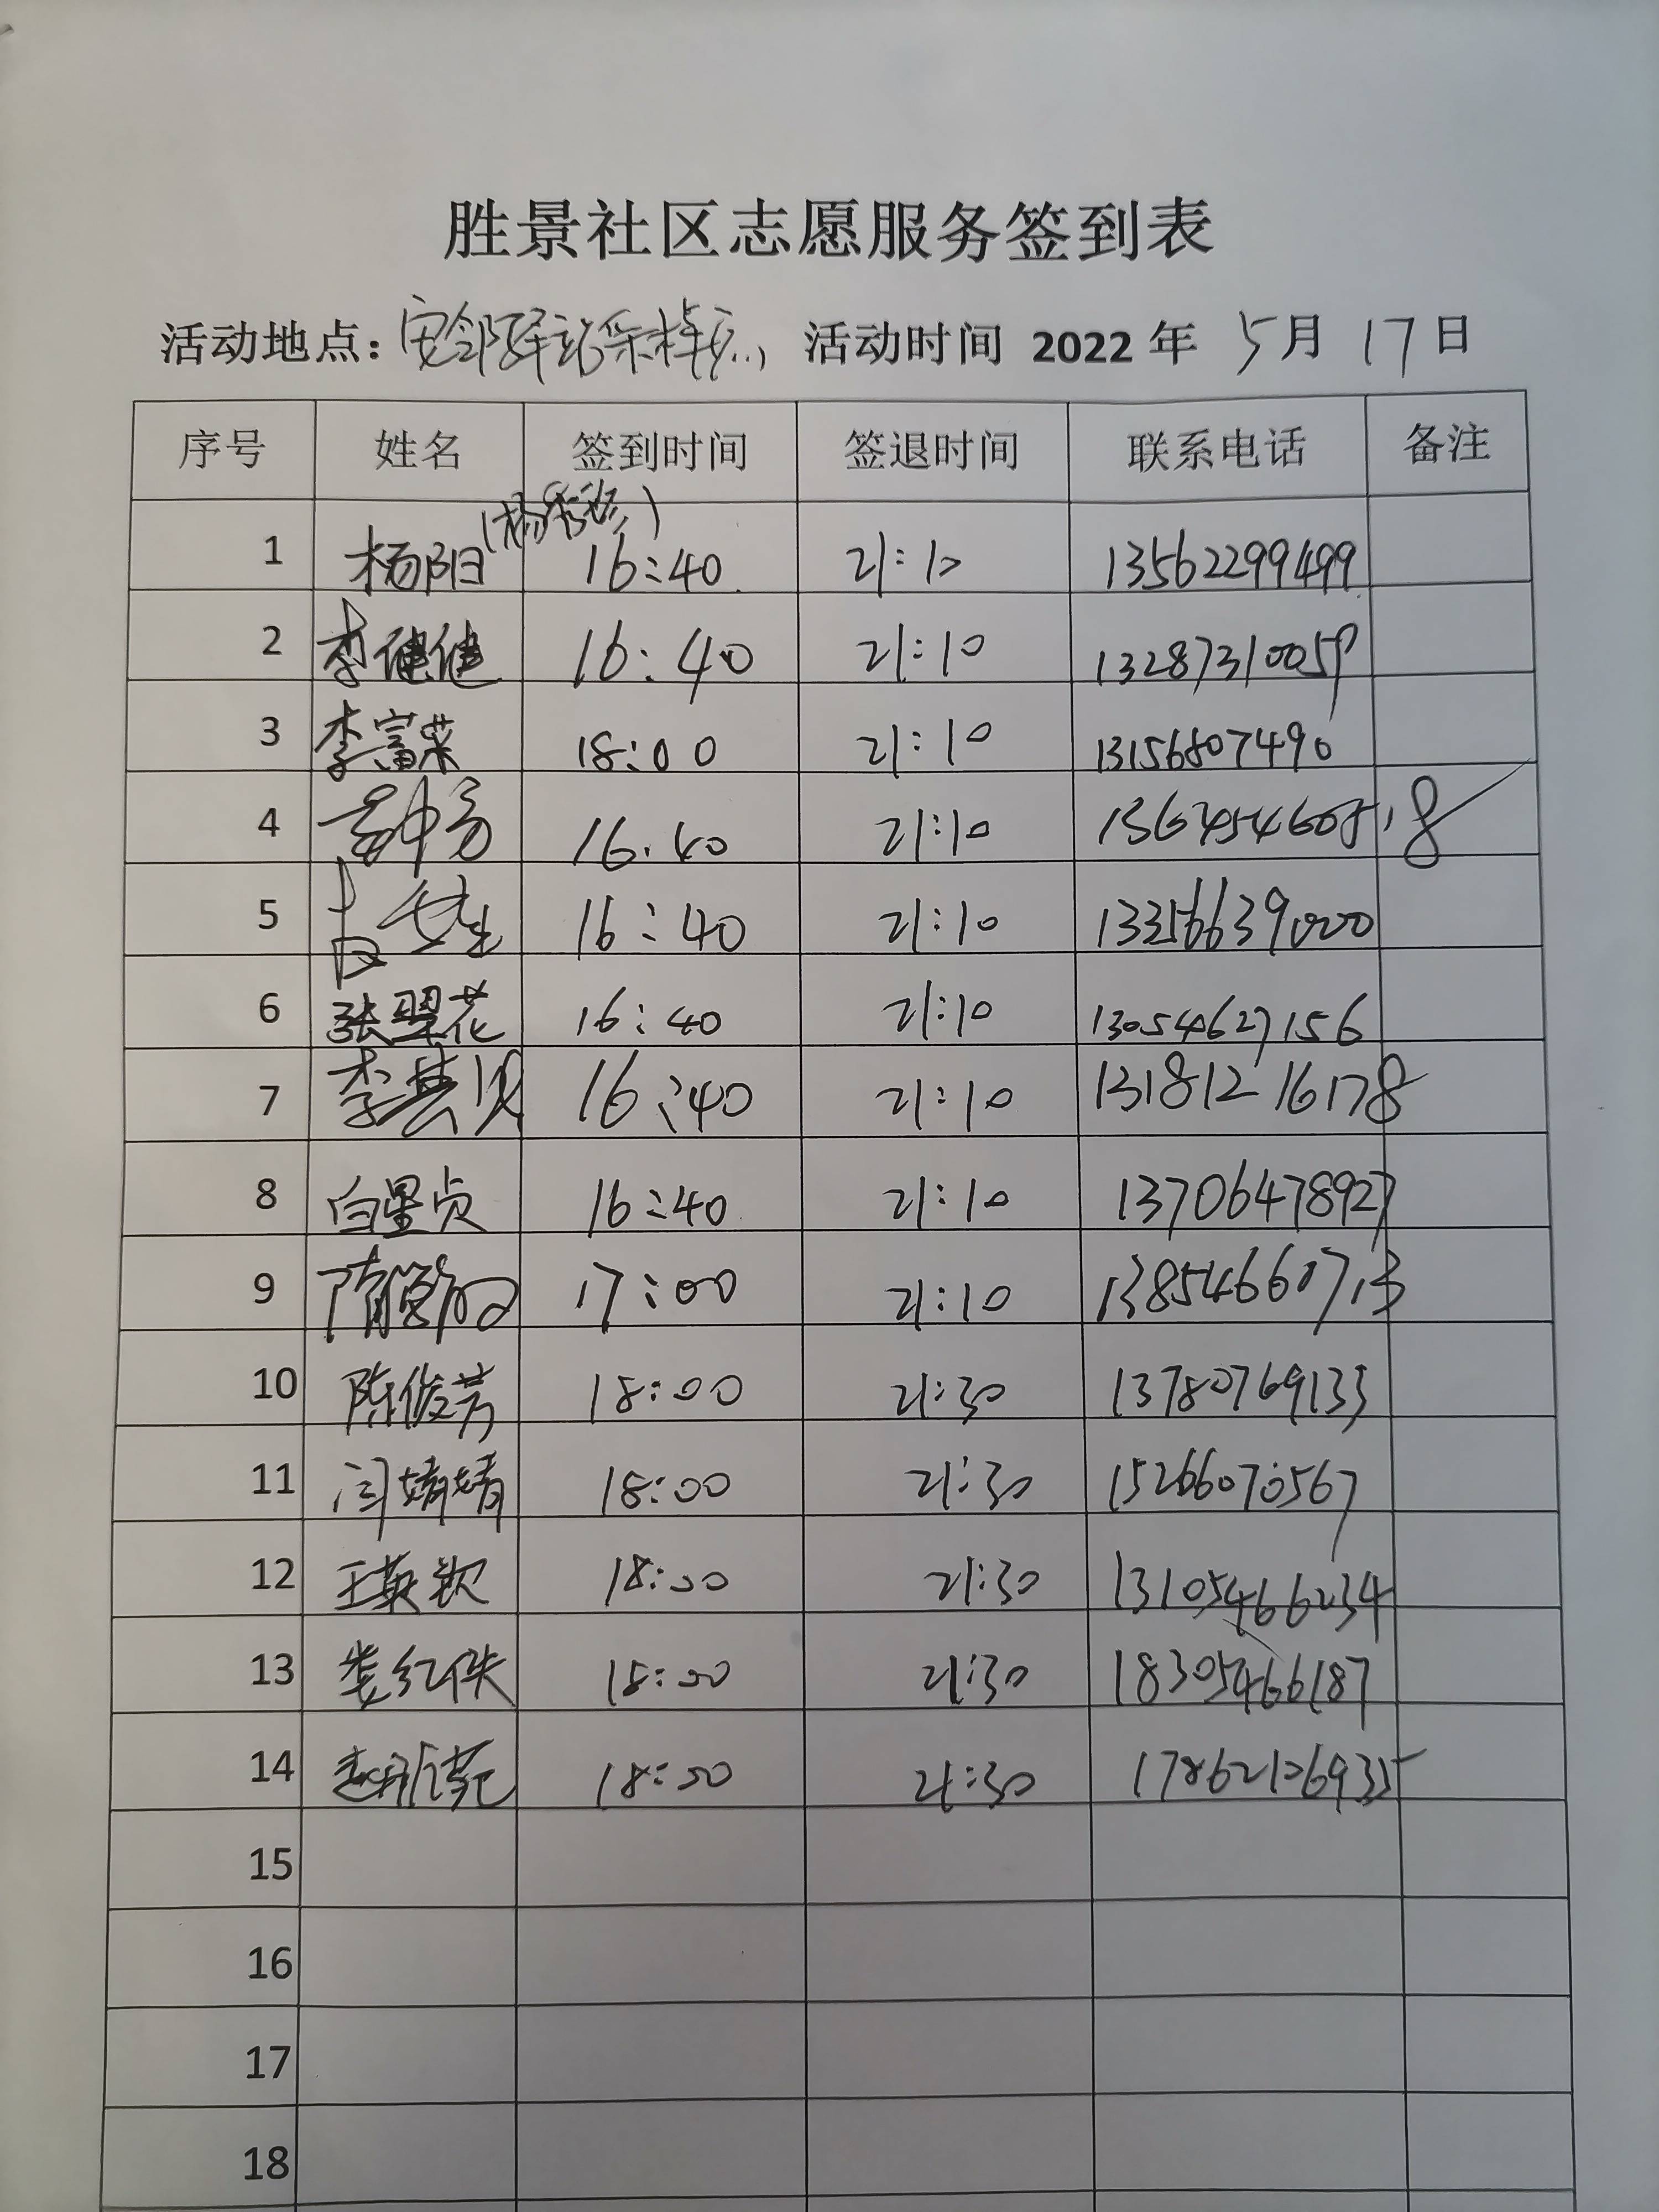 胜景社区志愿服务签到表
活动地点: 安邻驿站采样点 活动时间 2022 年 5 月 17 日
序号 姓名 签到时间 签退时间 联系电话 备注
1 杨阳 16:40 21:10 13562299499
2 李健健 16:40 21:10 13287310059
3 李富荣 18:00 21:10 13156807490
4 16:40 21:10
5 16:40 21:10
6 张翠花 16:40 21:10 13054627156
7 16:40 21:10 13181216178
8 白星贞 16:40 21:10 13706478927
9 17:00 21:10
10 陈俊芳 18:00 21:30 13780769133
11 闫婧婧 18:00 21:30 15266070567
12 王英钦 18:00 21:30 13105466234
13 娄红佚 18:00 21:30 18305466187
14 18:00 21:30 17862126935
15
16
17
18